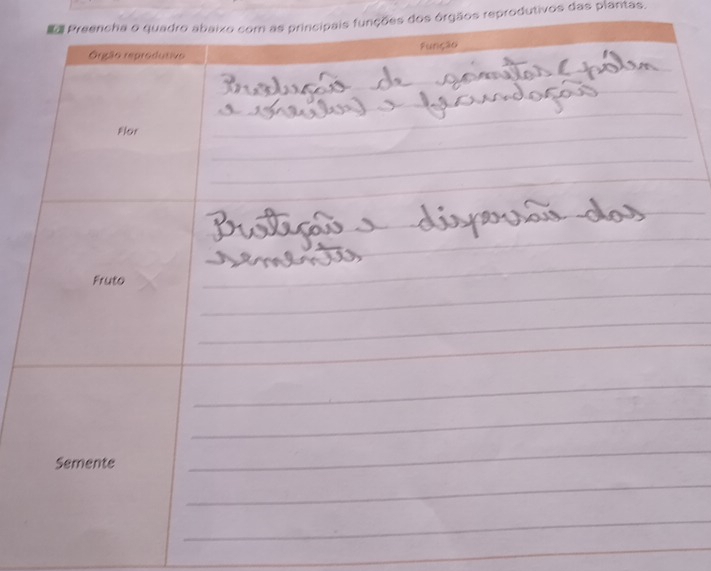 Preencha o quadro abaixo com as principais funções dos órgãos reprodutivos das plantas.
Órgão reprodutivo
Função
Flor
Produção de gametas (pólen
e óvulos) e fecundação
Fruto
Proteção e dispersão das
sementes
Semente